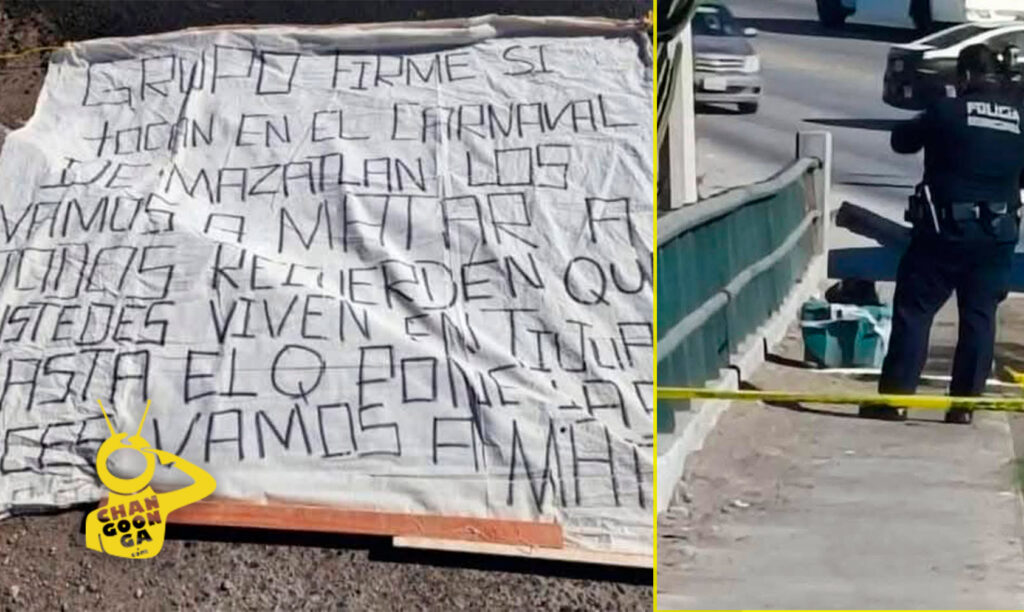 GRUPO FIRME SI
TOCAN EN EL CARNAVAL
DE MAZATLAN LOS
VAMOS A MATAR A
TODOS RECUERDEN QU
USTEDES VIVEN EN TIJUA
ASTA EL Q PONE LAS
VAMOS A MATA
CHAN
GOON
GA
.com
POLICIA